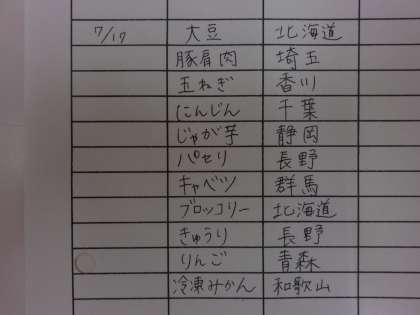 7/17 大豆 北海道
豚肩肉 埼玉
玉ねぎ 香川
にんじん 千葉
じゃが芋 静岡
パセリ 長野
キャベツ 群馬
ブロッコリー 北海道
きゅうり 長野
りんご 青森
冷凍みかん 和歌山